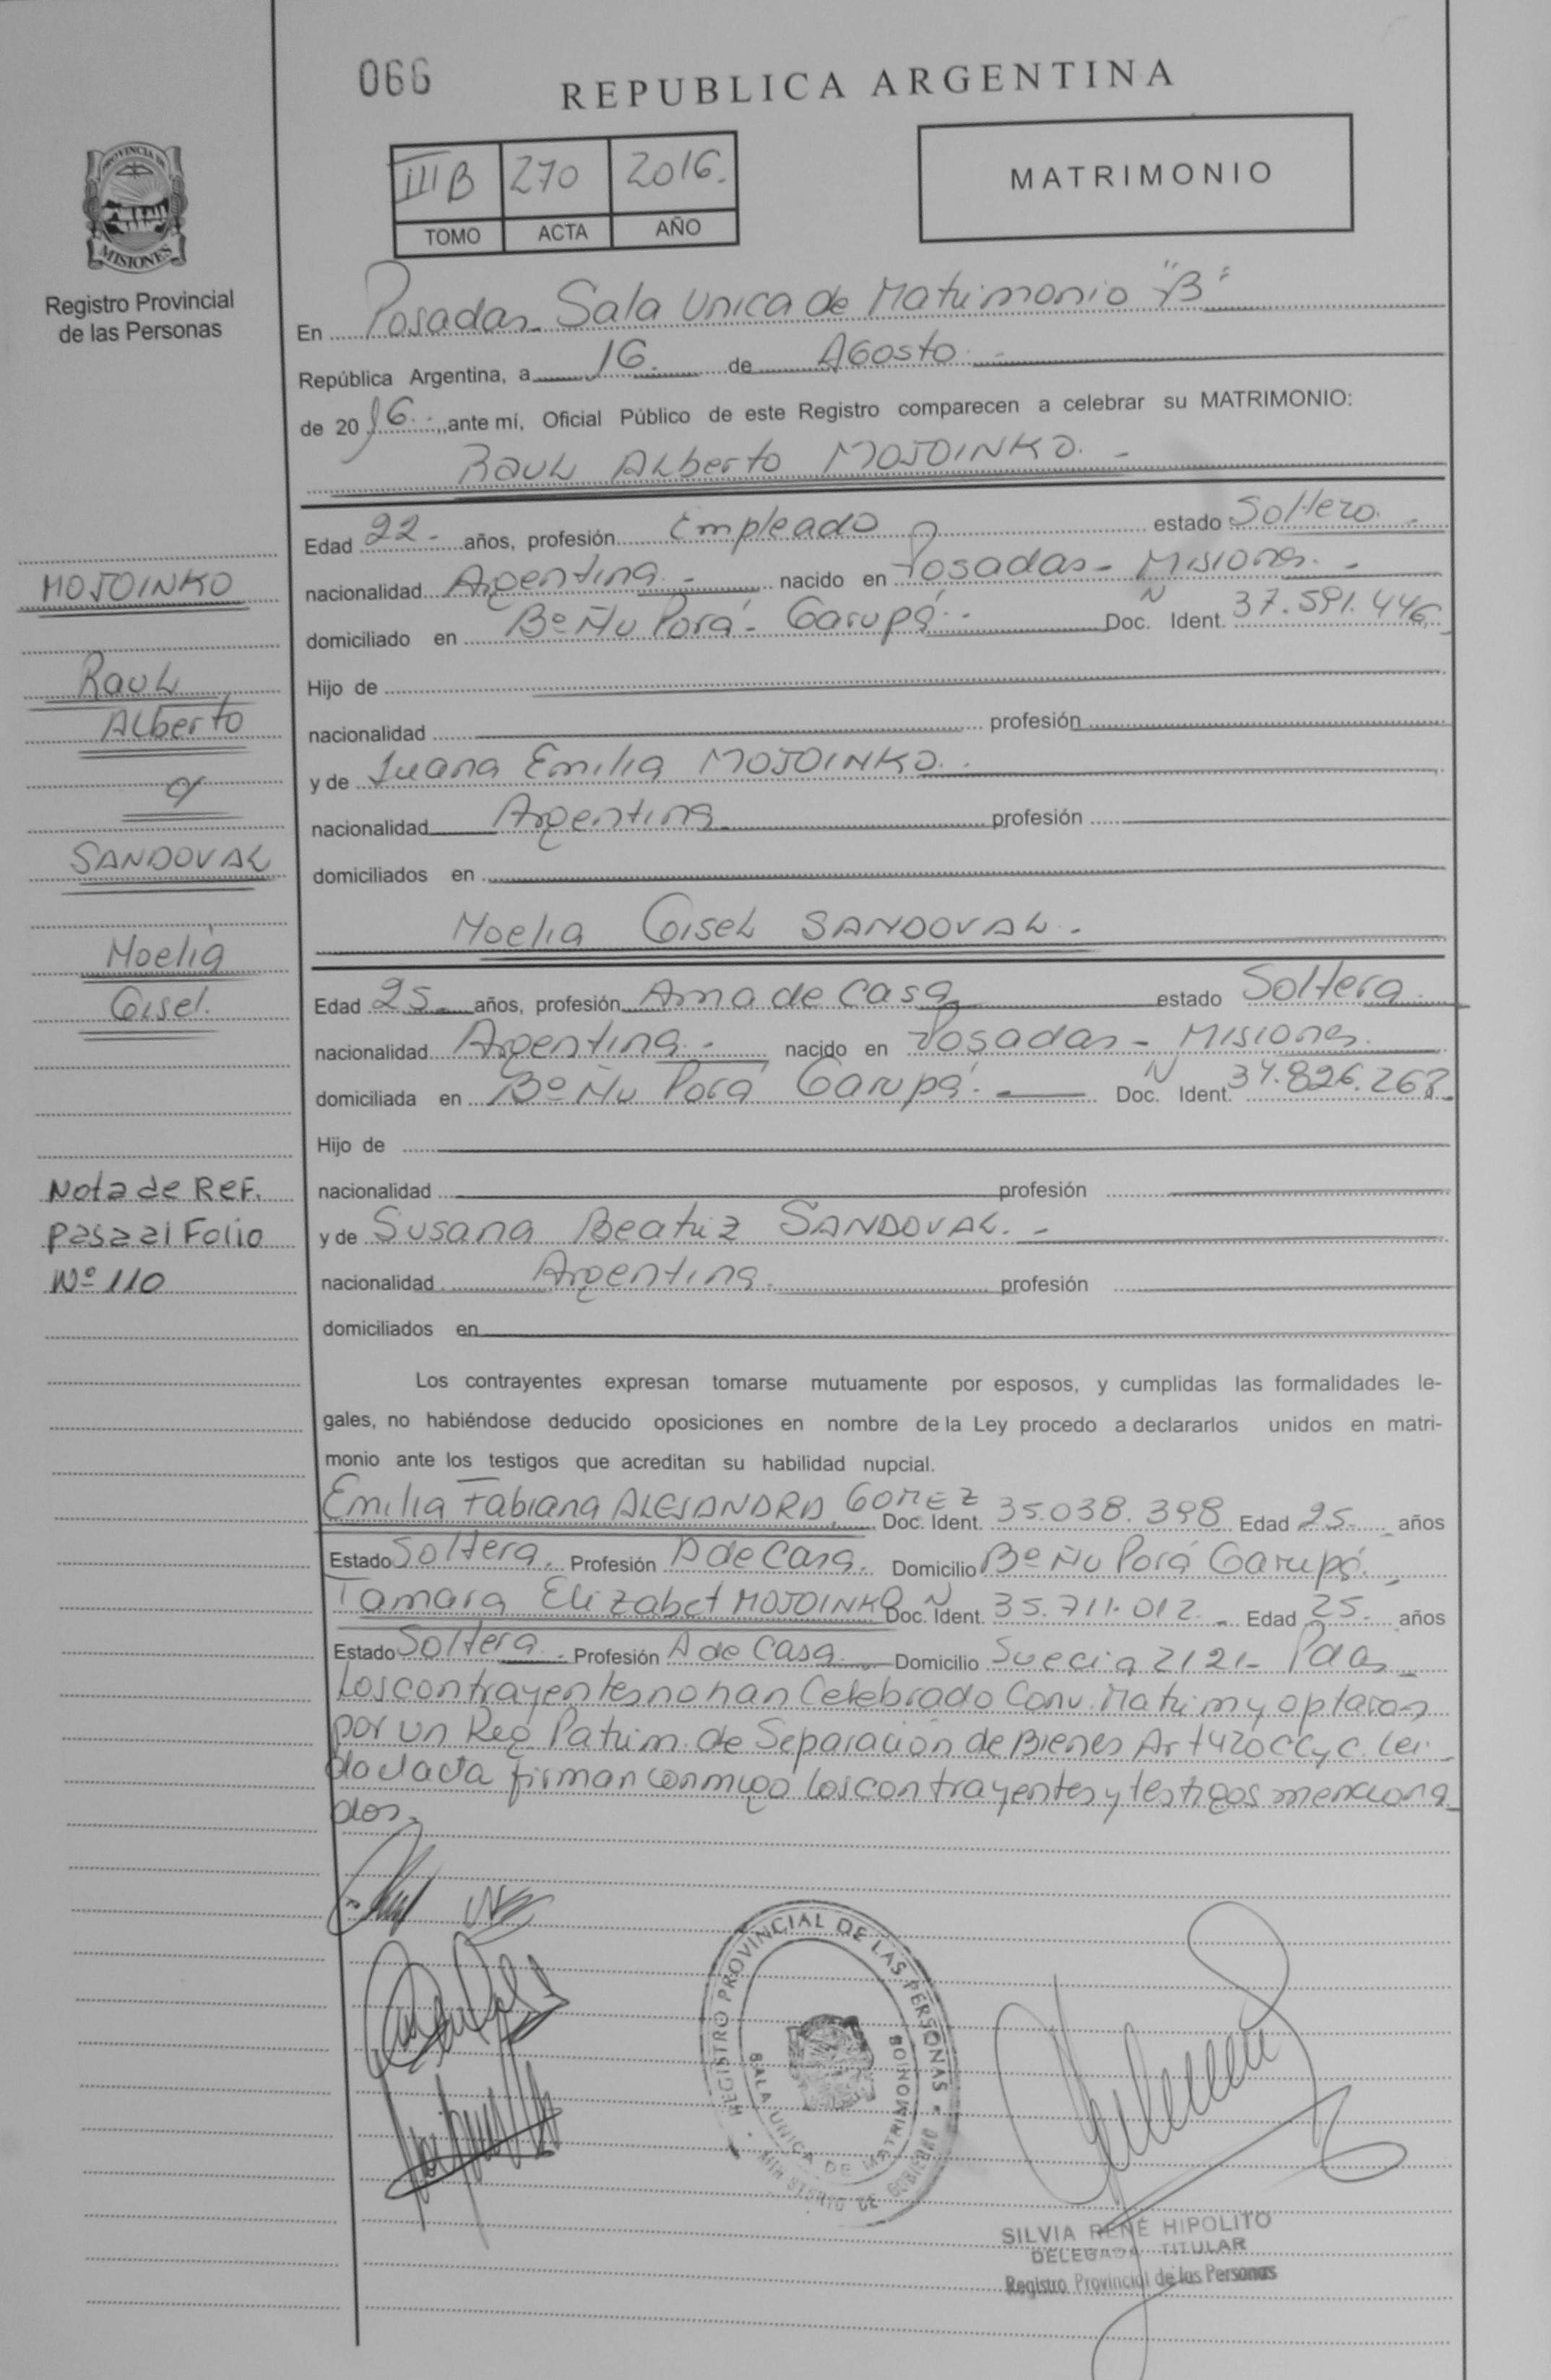 066
REPUBLICA ARGENTINA
III B 270 2016.
TOMO ACTA AÑO
MATRIMONIO
PROVINCIA DE
MISIONES
Registro Provincial
de las Personas
En Posadas Sala Unica de Matrimonio "B"
República Argentina, a 16. de Agosto.
de 2016. ante mí, Oficial Público de este Registro comparecen a celebrar su MATRIMONIO:
Raul Alberto MOJOINKO. -
Edad 22- años, profesión Empleado estado Soltero. -
nacionalidad Argentina - nacido en Posadas - Misiones. -
domiciliado en Bº Ñu Porá - Garupá. Doc. N Ident. 37.591.446
Hijo de
nacionalidad profesión
y de Juana Emilia MOJOINKO.
nacionalidad Argentina profesión
domiciliados en
Noelia Gisel SANDOVAL. -
Edad 25 años, profesión Ama de Casa estado Soltera.
nacionalidad Argentina - nacido en Posadas - Misiones.
domiciliada en Bº Ñu Porá Garupá. Doc. N Ident. 34.826.267
Hijo de
nacionalidad profesión
y de Susana Beatriz SANDOVAL. -
nacionalidad Argentina. profesión
domiciliados en
MOJOINKO
Raul
Alberto
y
SANDOVAL
Noelia
Gisel.
Nota de Ref.
Pasa al Folio
Nº 110
Los contrayentes expresan tomarse mutuamente por esposos, y cumplidas las formalidades le-
gales, no habiéndose deducido oposiciones en nombre de la Ley procedo a declararlos unidos en matri-
monio ante los testigos que acreditan su habilidad nupcial.
Emilia Fabiana ALEJANDRA GOMEZ Doc. Ident. 35.038.398 Edad 25- años
Estado Soltera. Profesión A de Casa. Domicilio Bº Ñu Porá Garupá.
Tamara Elizabet MOJOINKO Doc. N Ident. 35.711.012.- Edad 25. años
Estado Soltera - Profesión A de Casa Domicilio Suecia 2121- Pdas
Los contrayentes no han Celebrado Conv. Matrim y optaron
por un Reg Patrim de Separación de Bienes Art 420 CCyC. Lei-
da el acta firman conmigo los contrayentes y testigos menciona
dos.
REGISTRO PROVINCIAL DE LAS PERSONAS
SALA UNICA DE MATRIMONIOS
MINISTERIO DE GOBIERNO
SILVIA RENÉ HIPOLITO
DELEGADA TITULAR
Registro Provincial de las Personas